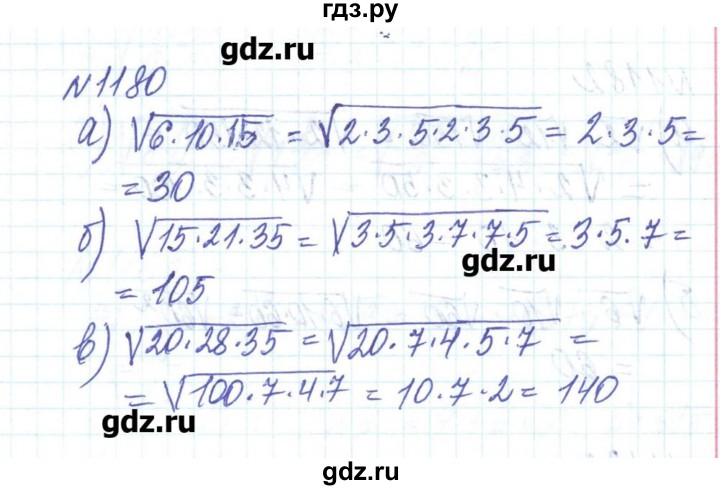 гдз.ру
gdz.ru
№1180
а) √6·10·15 = √2·3·5·2·3·5 = 2·3·5=
=30
б) √15·21·35 = √3·5·3·7·7·5 = 3·5·7=
gdz.ru
= 105
в) √20·28·35 = √20·7·4·5·7 =
= √100·7·4·7 = 10·7·2 = 140
gdz.ru
gdz.ru